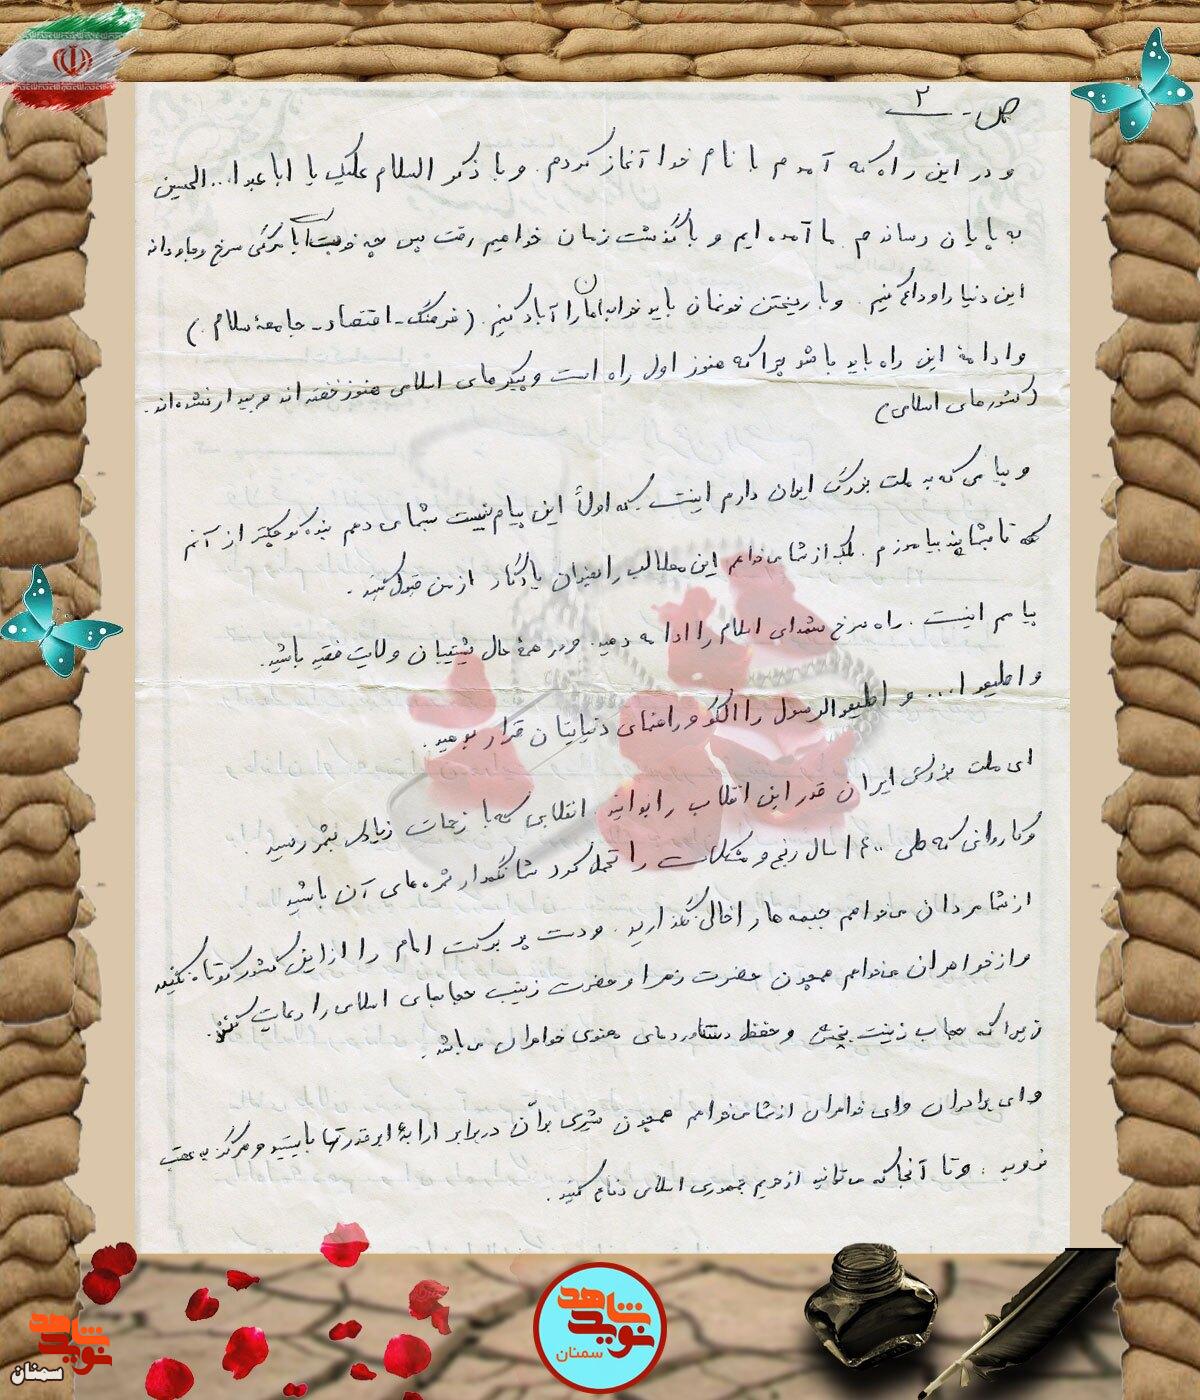 ص - ۲
و در این راه که آمدم با نام خدا آغاز کردم. و با ذکر السلام علیک یا ابا عبدا... الحسین
به پایان رساندم ما آمده ایم و با گذشت زمان خواهیم رفت پس چه خوبست با مرگی سرخ و جاودانه
این دنیا را وداع کنیم. و با ریختن خونمان باید خوابامان را آباد کنیم. (فرهنگ - اقتصاد - جامعهٔ سلام.)
و ادامهٔ این راه باید باشد چرا که هنوز اول راه است و پیکرهای اسلامی هنوز خفته اند و بیدار نشده اند.
(کشورهای اسلامی)
و پیامی که به ملت بزرگ ایران دارم اینست که اولاً این پیام نیست بشما می دهم بنده کوچکتر از آنم
که تا بشما پند بیاموزم. بلکه از شما می‌خواهم این مطالب را بعنوان یادگار از من قبول کنید.
پیامم اینست. راه سرخ شهدای اسلام را ادامه دهید. و در همهٔ حال پشتیبان ولایت فقیه باشید.
و اطیعو ا... و اطیعو الرسول را الگو و راهنمای دنیایتان قرار بدهید.
ای ملت بزرگ ایران قدر این انقلاب را بدانید انقلابی که با زحمات زیادی بثمر رسید
و کاروانی که طی ۱۴۰۰ سال رنج و مشکلات را تحمل کرد شما نگهدار ثمره های آن باشید
از شما مردان می‌خواهم جبهه ها را خالی نگذارید. و دست پر برکت امام را از این کشور کوتاه نکنید
و از خواهران می‌خواهم همچون حضرت زهرا و حضرت زینب حجابهای اسلامی را رعایت کنند.
زیرا که حجاب زینت بخش و حفظ دستاوردهای معنوی خواهران می باشد.
و ای برادران و ای خواهران از شما می‌خواهم همچون شیری برّان در برابر ارابهٔ ابرقدرتها بایستید و هرگز به عقب
نروید. و تا آنجا که می توانید از حریم جمهوری اسلامی دفاع کنید.
نوید شاهد
سمنان
نوید شاهد
سمنان